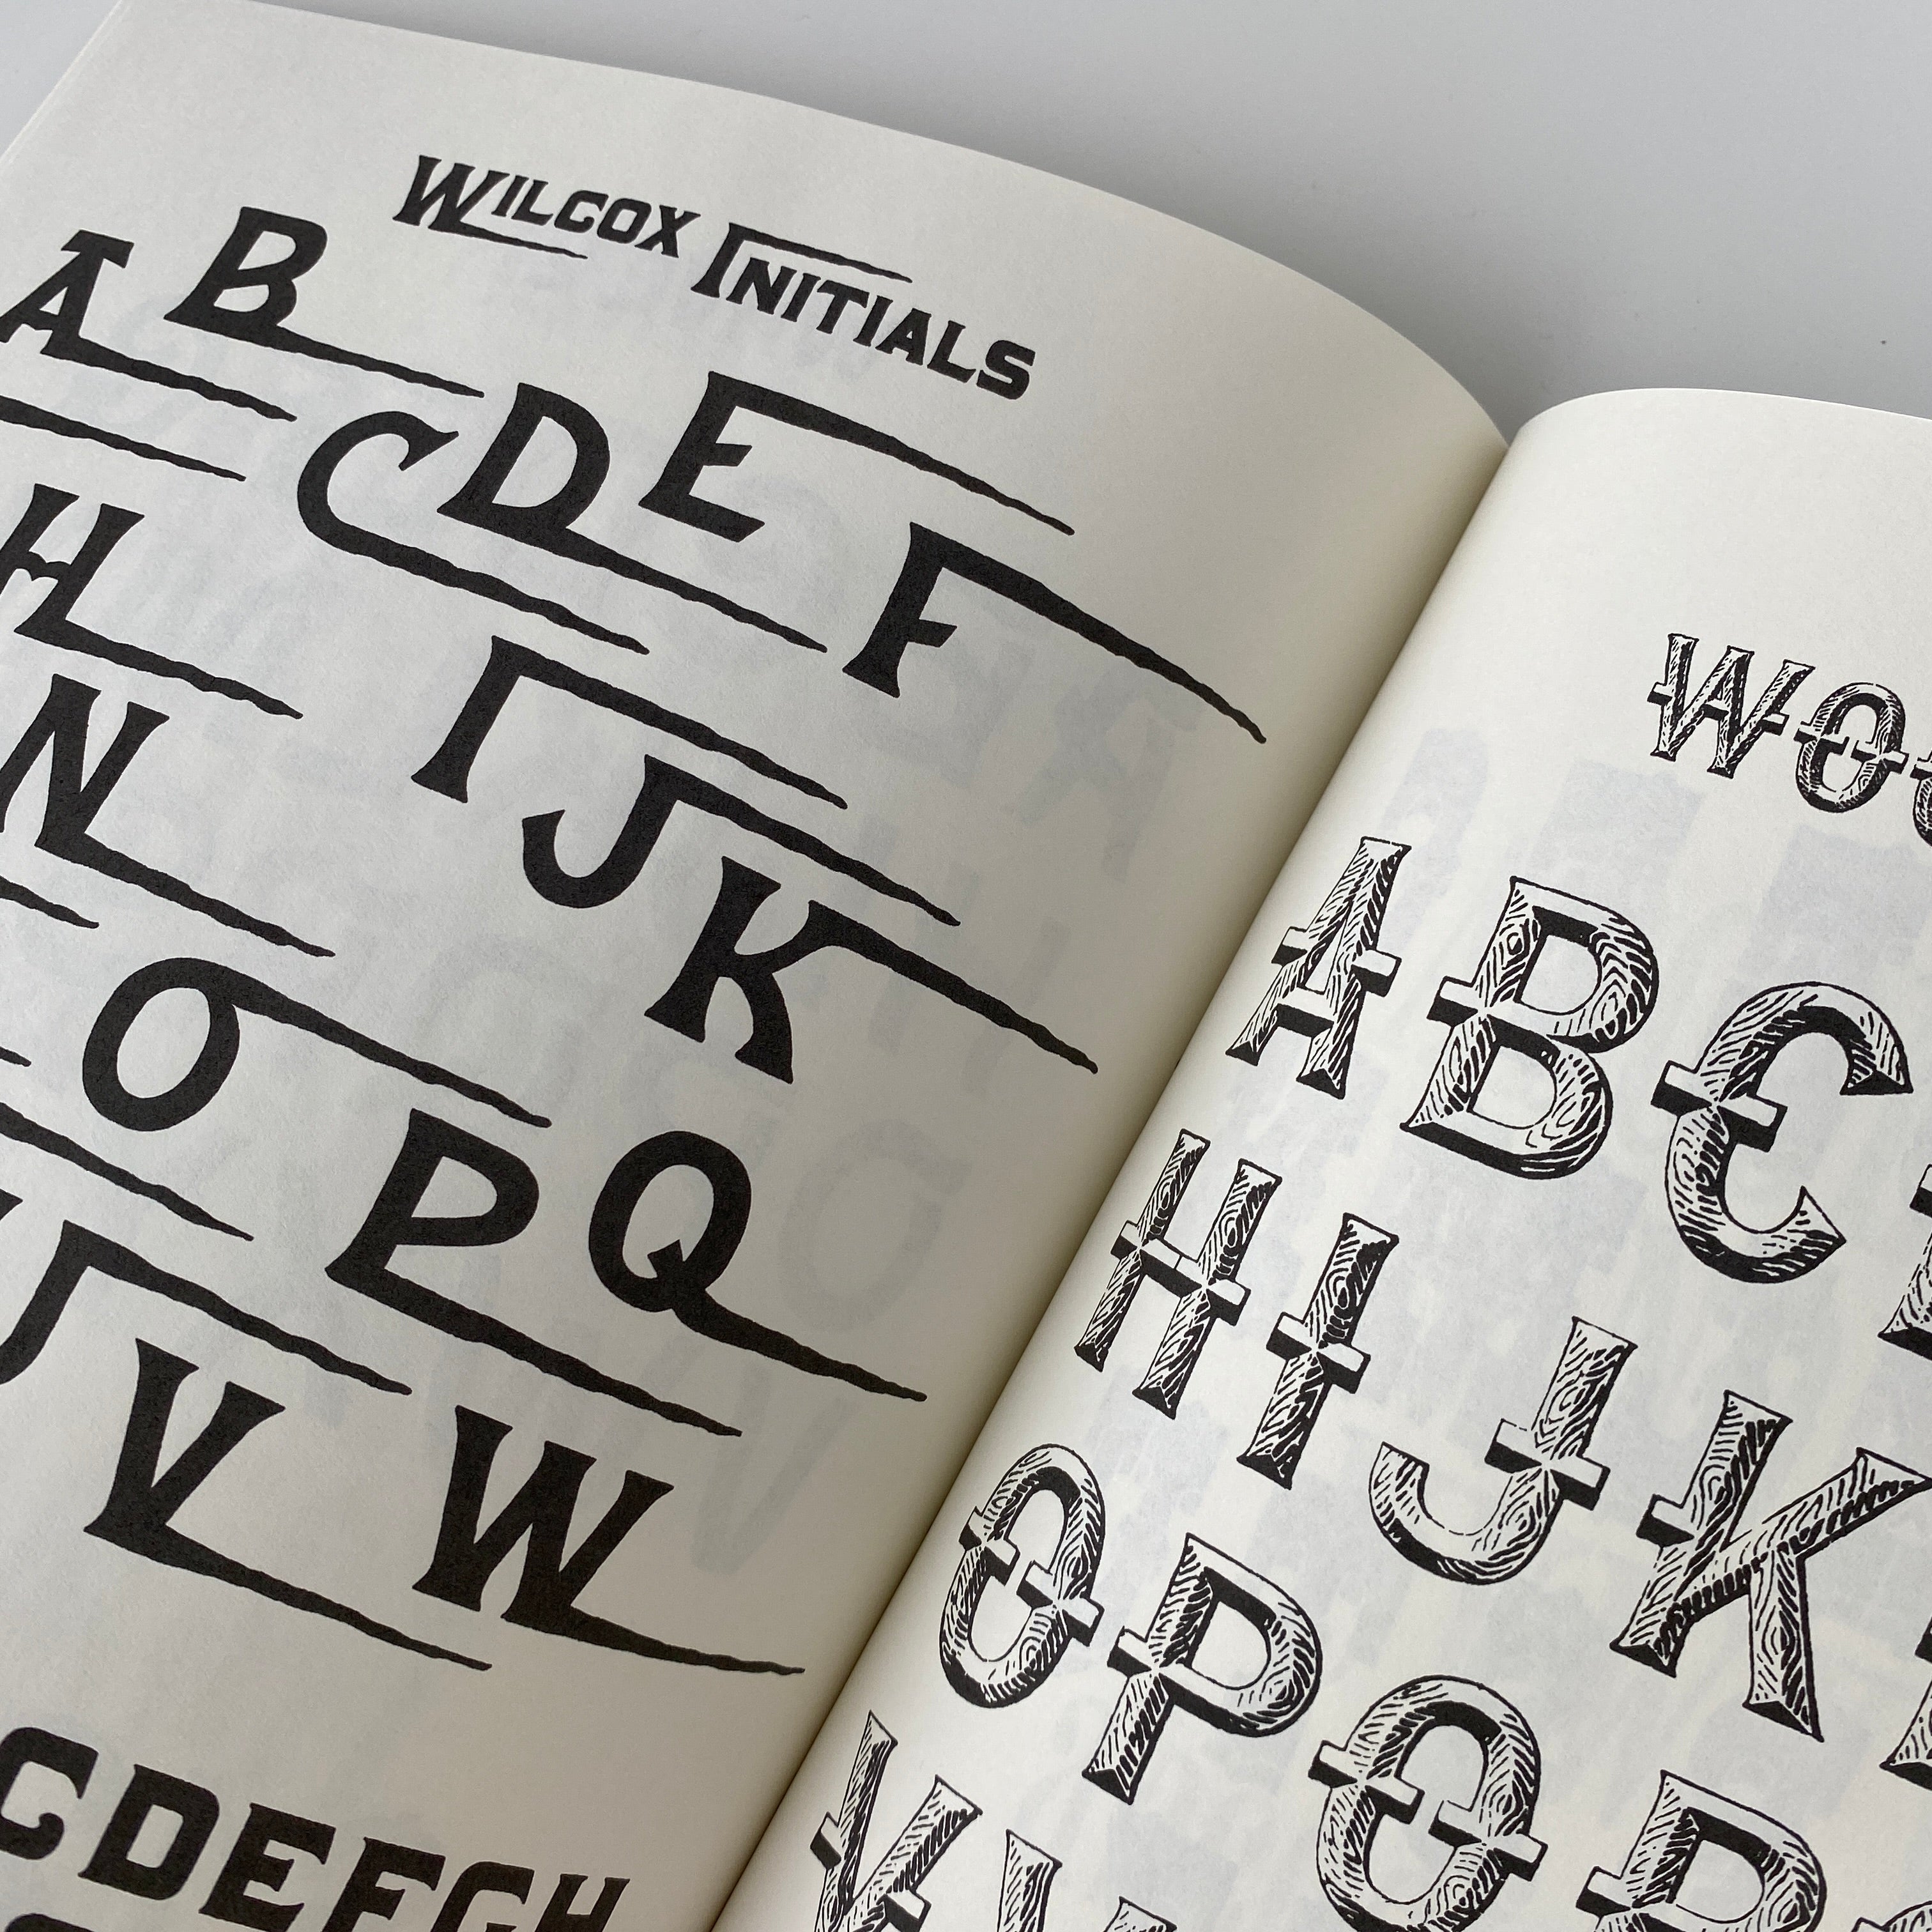 WILCOX INITIALS
A B C D E F
H I J K
N O P Q
V W
C D E F G H
WO
A B C
H I J K
O P Q R
V